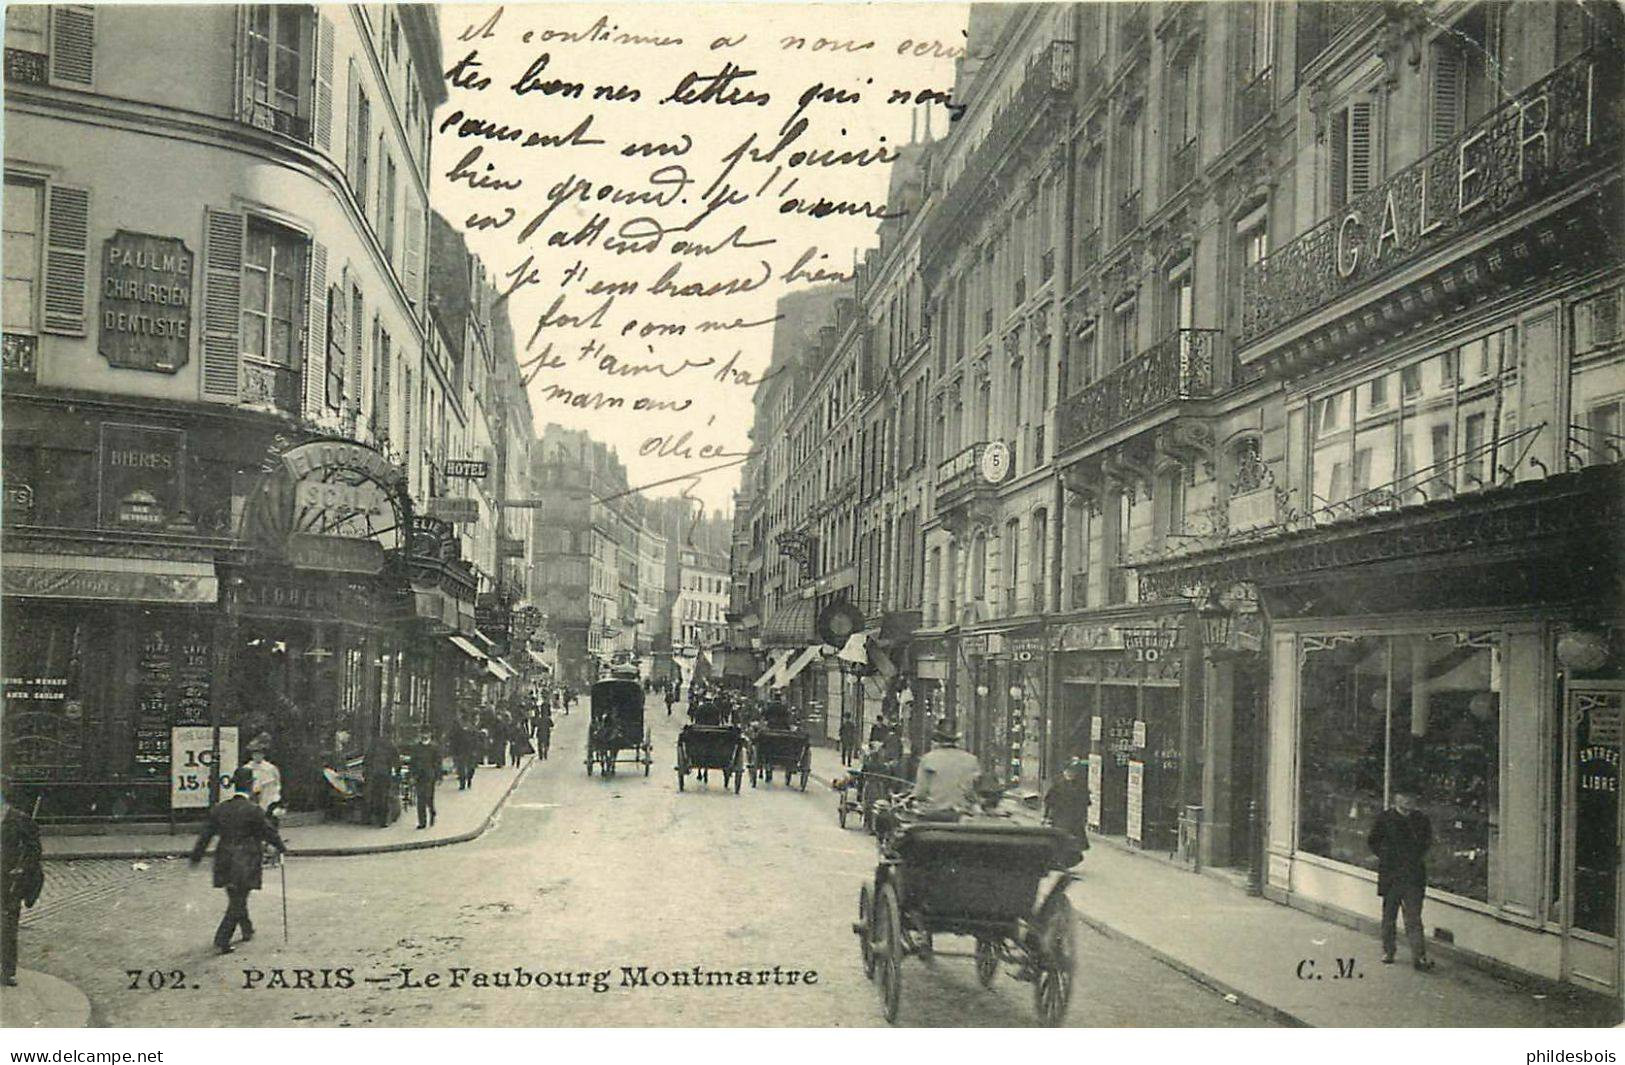 et continues a nous ecrire
tes bonnes lettres qui nous
causent un plaisir
bien grand. je t'assure
en attendant
je t'embrasse bien
fort comme
je t'aime ta
maman
Alice
PAULME
CHIRURGIEN
DENTISTE
VINS
BIÈRES
ELDORADO
SCALA
HOTEL
GALERI
5
10
15
10c
10c
ENTRÉE
LIBRE
702. PARIS - Le Faubourg Montmartre
C. M.
www.delcampe.net
phildesbois